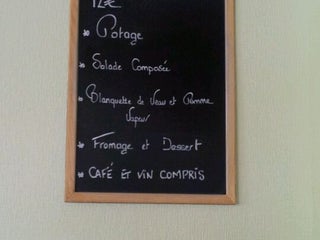 12€
* Potage
* Salade Composée
* Blanquette de Veau et Pomme
Vapeur
* Fromage et Dessert
* CAFÉ ET VIN COMPRIS